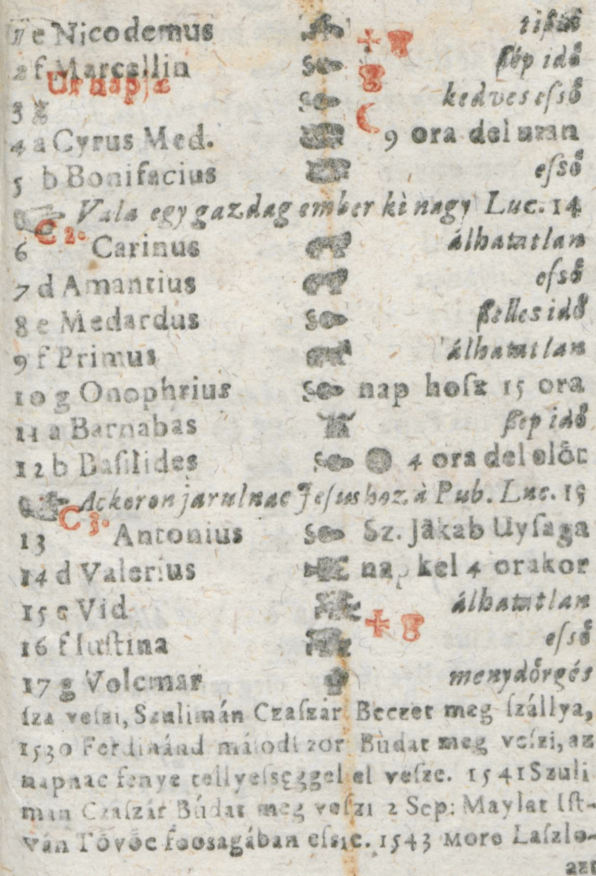 1 e Nicodemus tissũ
2 f Marcellin ſép idő
Ur napja
3 g kedves eſső
4 a Cyrus Med. 9 ora del utan
5 b Bonifacius eſső
Vala egy gazdag ember ki nagy Luc. 14
6 C 2. Carinus álhatatlan
7 d Amantius eſső
8 e Medardus ſelles idő
9 f Primus álhatatlan
10 g Onophrius nap hoſz 15 ora
11 a Barnabas ſép idő
12 b Baſilides 4 ora del előt
Ackoron jarulnac Jeſushoz à Pub. Luc. 15
13 C 3. Antonius Sz. Jäkab Uyſaga
14 d Valerius nap kel 4 orakor
15 e Vid álhatatlan
16 f Iuſtina eſső
17 g Volcmar menydőrgés
ſza veſzi, Szulimán Czaſzár Beczet meg ſzállya,
1530 Ferdinánd máſodſzor Budat meg veſzi, az
napnac fenye tellyeſséggel el veſze. 1541 Szuli
mán Czaſzár Búdat meg veſzi 2 Sep: Maylat Iſt-
ván Tővőc foosagában eſsic. 1543 More Laſzlo-